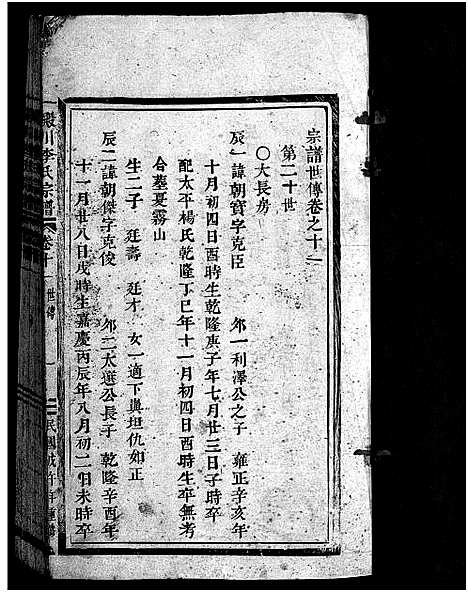 宗譜世傳卷之十一
第二十世
〇大長房
辰一諱朝寶字克臣 邜一利澤公之子 雍正辛亥年
十月初四日酉時生乾隆庚子年七月廿三日子時卒
配太平楊氏乾隆丁巳年十一月初四日酉時生卒無考
合墓夏霧山
生二子 廷壽 廷才 女一適下與坦仇如正
辰二諱朝傑字克俊 邜二太選公長子 乾隆辛酉年
十一月廿八日戌時生嘉慶丙辰年八月初二日未時卒
川李氏宗譜 卷十一 世傳 一 民國